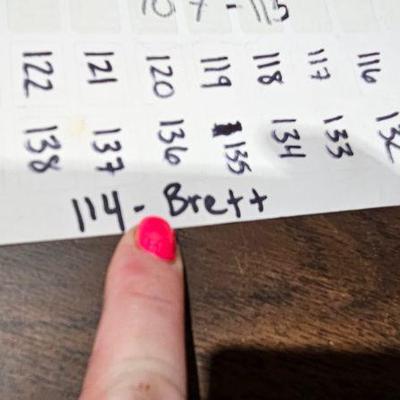 107-115
122 121 120 119 118 117 116
138 137 136 135 134 133 132
114 - Brett